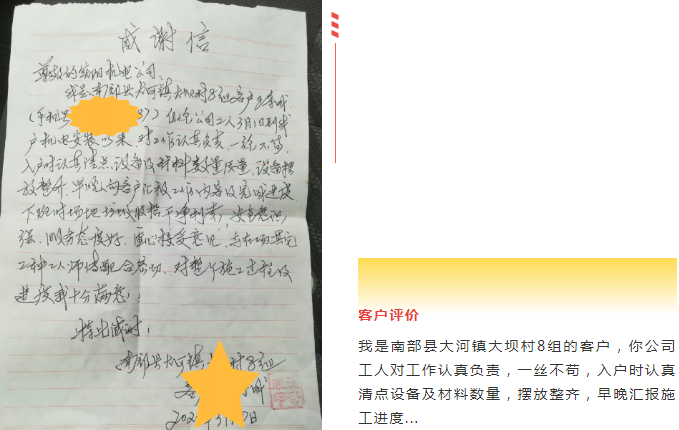 感谢信
尊敬的 机电公司:
我是南部县大河镇大坝村8组客户
(手机号 ) 你公司工人3月1日到我
户机电安装以来,对工作认真负责,一丝不苟,
入户时认真清点设备及材料数量质量,设备摆
放整齐,早晚向客户汇报工作内容及完成进度
下班时场地垃圾 干净利索,安全意识
强、服务态度好、虚心接受意见,与在场其它
工种工人师傅配合密切,对整个施工过程及
进度我十分满意!
特此感谢!
南部县大河镇 村8组
客户评价
我是南部县大河镇大坝村8组的客户,你公司
工人对工作认真负责,一丝不苟,入户时认真
清点设备及材料数量,摆放整齐,早晚汇报施
工进度...